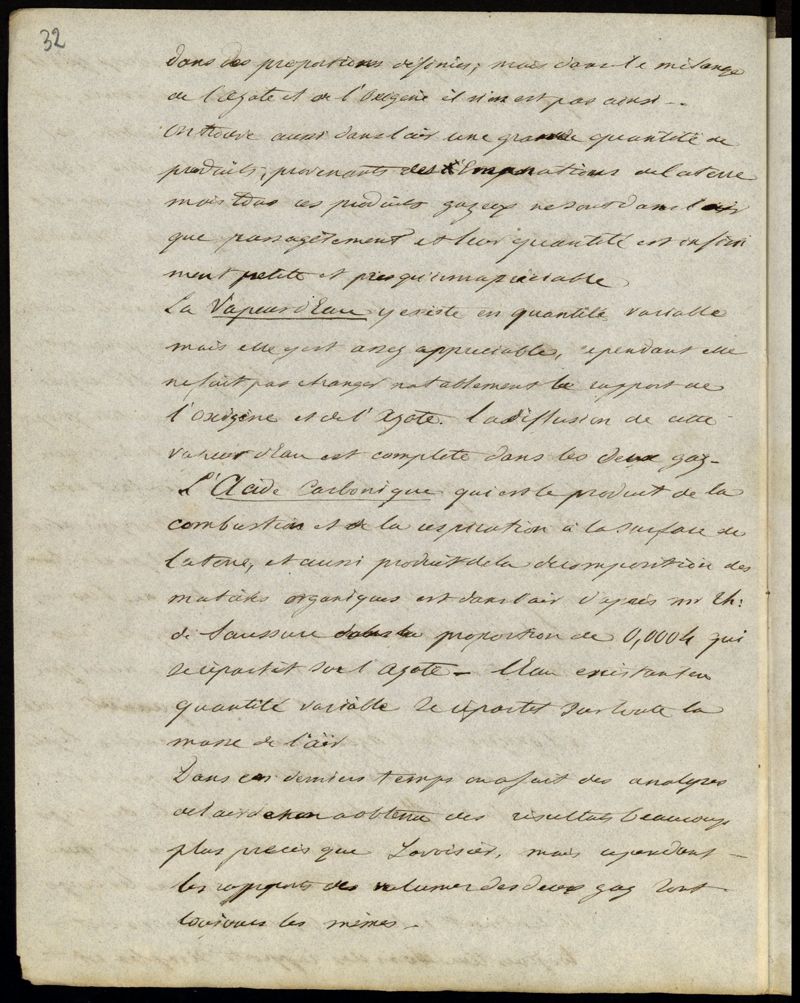 32
dans des proportions définies; mais dans le mélange
de l'Azote et de l'Oxigène il n'en est pas ainsi..
On trouve aussi dans l'air une grande quantité de
produits, provenants des Emanations de la terre
mais tous ces produits gazeux ne sont dans l'air
que passagèrement et leur quantité est infini
ment petite et presqu'innapréciable
La Vapeur d'Eau y existe en quantité variable
mais elle y est assez appreciable, cependant elle
ne fait pas changer notablement le rapport de
l'Oxigène et de l'Azote. la diffusion de cette
vapeur d'Eau est complete dans les deux gaz-
L'Acide Carbonique qui est le produit de la
combustion et de la respiration à la surface de
la terre, et aussi produit de la décomposition des
matières organiques est dans l'air d'après mr Th:
de Saussure dans la proportion de 0,0004 qui
se répartit sur l'Azote - L'Eau existant en
quantité variable se répartit sur toute la
masse de l'air
Dans ces derniers temps on a fait des analyses
de l'air et on a obtenu des résultats beaucoup
plus précis que Lavoisier, mais cependant -
les rapports des volumes des deux gaz sont
toujours les mêmes -